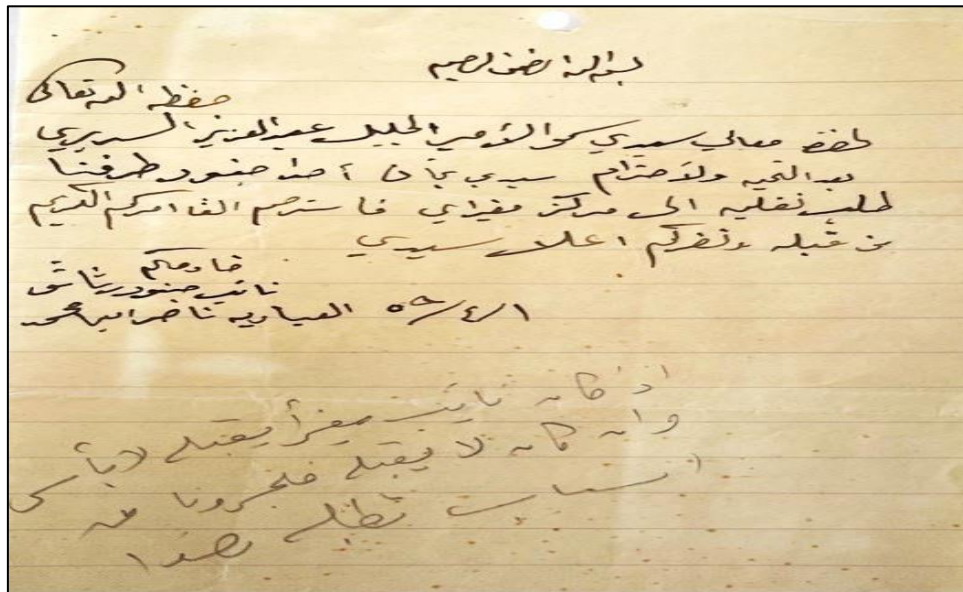 بسم الله الرحمن الرحيم
حفظه الله تعالى
لحضرة معالي سيدي سمو الأمير الجليل عبدالعزيز السديري
بعد التحية والاحترام سيدي بما ان احد جنود طرفنا
طلب نقليه الى مركز ميفراي فا سترحم الفا امركم الكريم
من قبله ونضركم اعلا سيدي
خادمكم
نائب جنود رشاش
١/٤/٥٩ العيساويه ناصر
اذ كان نايب يقبله لا بأس
وان كان لا يقبله فخبرونا عن
اسباب تطلبه هذا